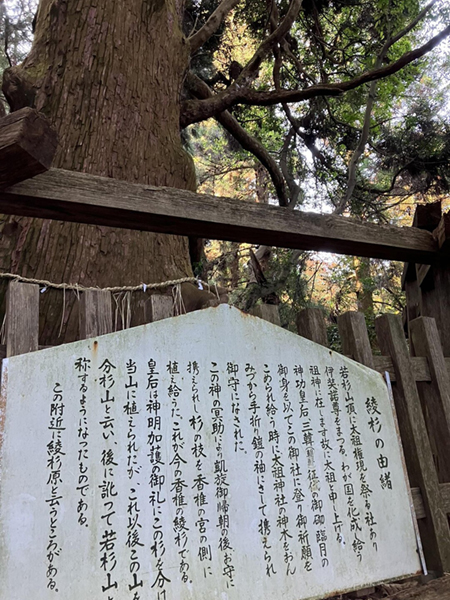 綾杉の由緒
若杉山頂に太祖権現を祭る社あり
伊弉諾尊をまつる。わが国を化成し給う
祖神に在しますが故に太祖と申し上げる。
神功皇后三韓征伐の御砌臨月の
御身を以てこの御社に登り御祈願を
こめられ給う時に太祖神社の神木をおん
みづから手折り鎧の袖にさして携えられ
御守になされた。
この神の冥助により凱旋御帰朝の後お守に
携えられし杉の枝を香椎の宮の側に
植え給うた、これが今の香椎の綾杉である。
皇后は神明加護の御礼にこの杉を分け
当山に植えられたが、これ以後この山を
分杉山と云い、後に訛って若杉山と
称するようになったものである。
この附近に綾杉原と云うところがある。